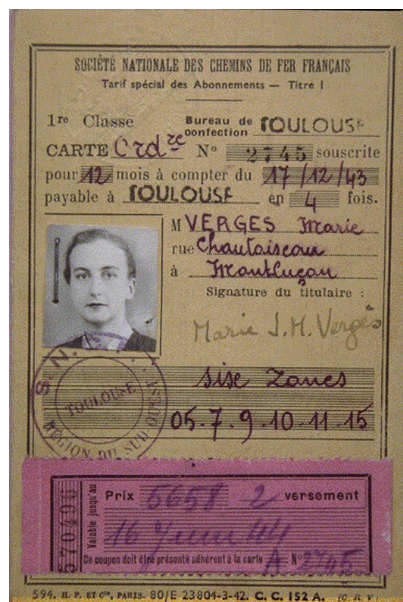 SOCIÉTÉ NATIONALE DES CHEMINS DE FER FRANÇAIS
Tarif spécial des Abonnements — Titre I
1re Classe Bureau de confection TOULOUSE
CARTE Crdre N° 2745 souscrite
pour 12 mois à compter du 17/12/43
payable à TOULOUSE en 4 fois.
M VERGES Marie
rue Chantoiseau
à Montluçon
Signature du titulaire :
Marie J.M. Vergès
S.N.
TOULOUSE
RÉGION DU SUD-OUEST
sise Zones
05.7.9.10.11.15
570496
Valable jusqu'au
Prix 5658 2 versement
16 Juin 44
Ce coupon doit être présenté adhérent à la carte A N° 2745
594. H. P. ET Cie, PARIS. 80/E 23804-3-42. C. C. 152 A. (O. R. V)